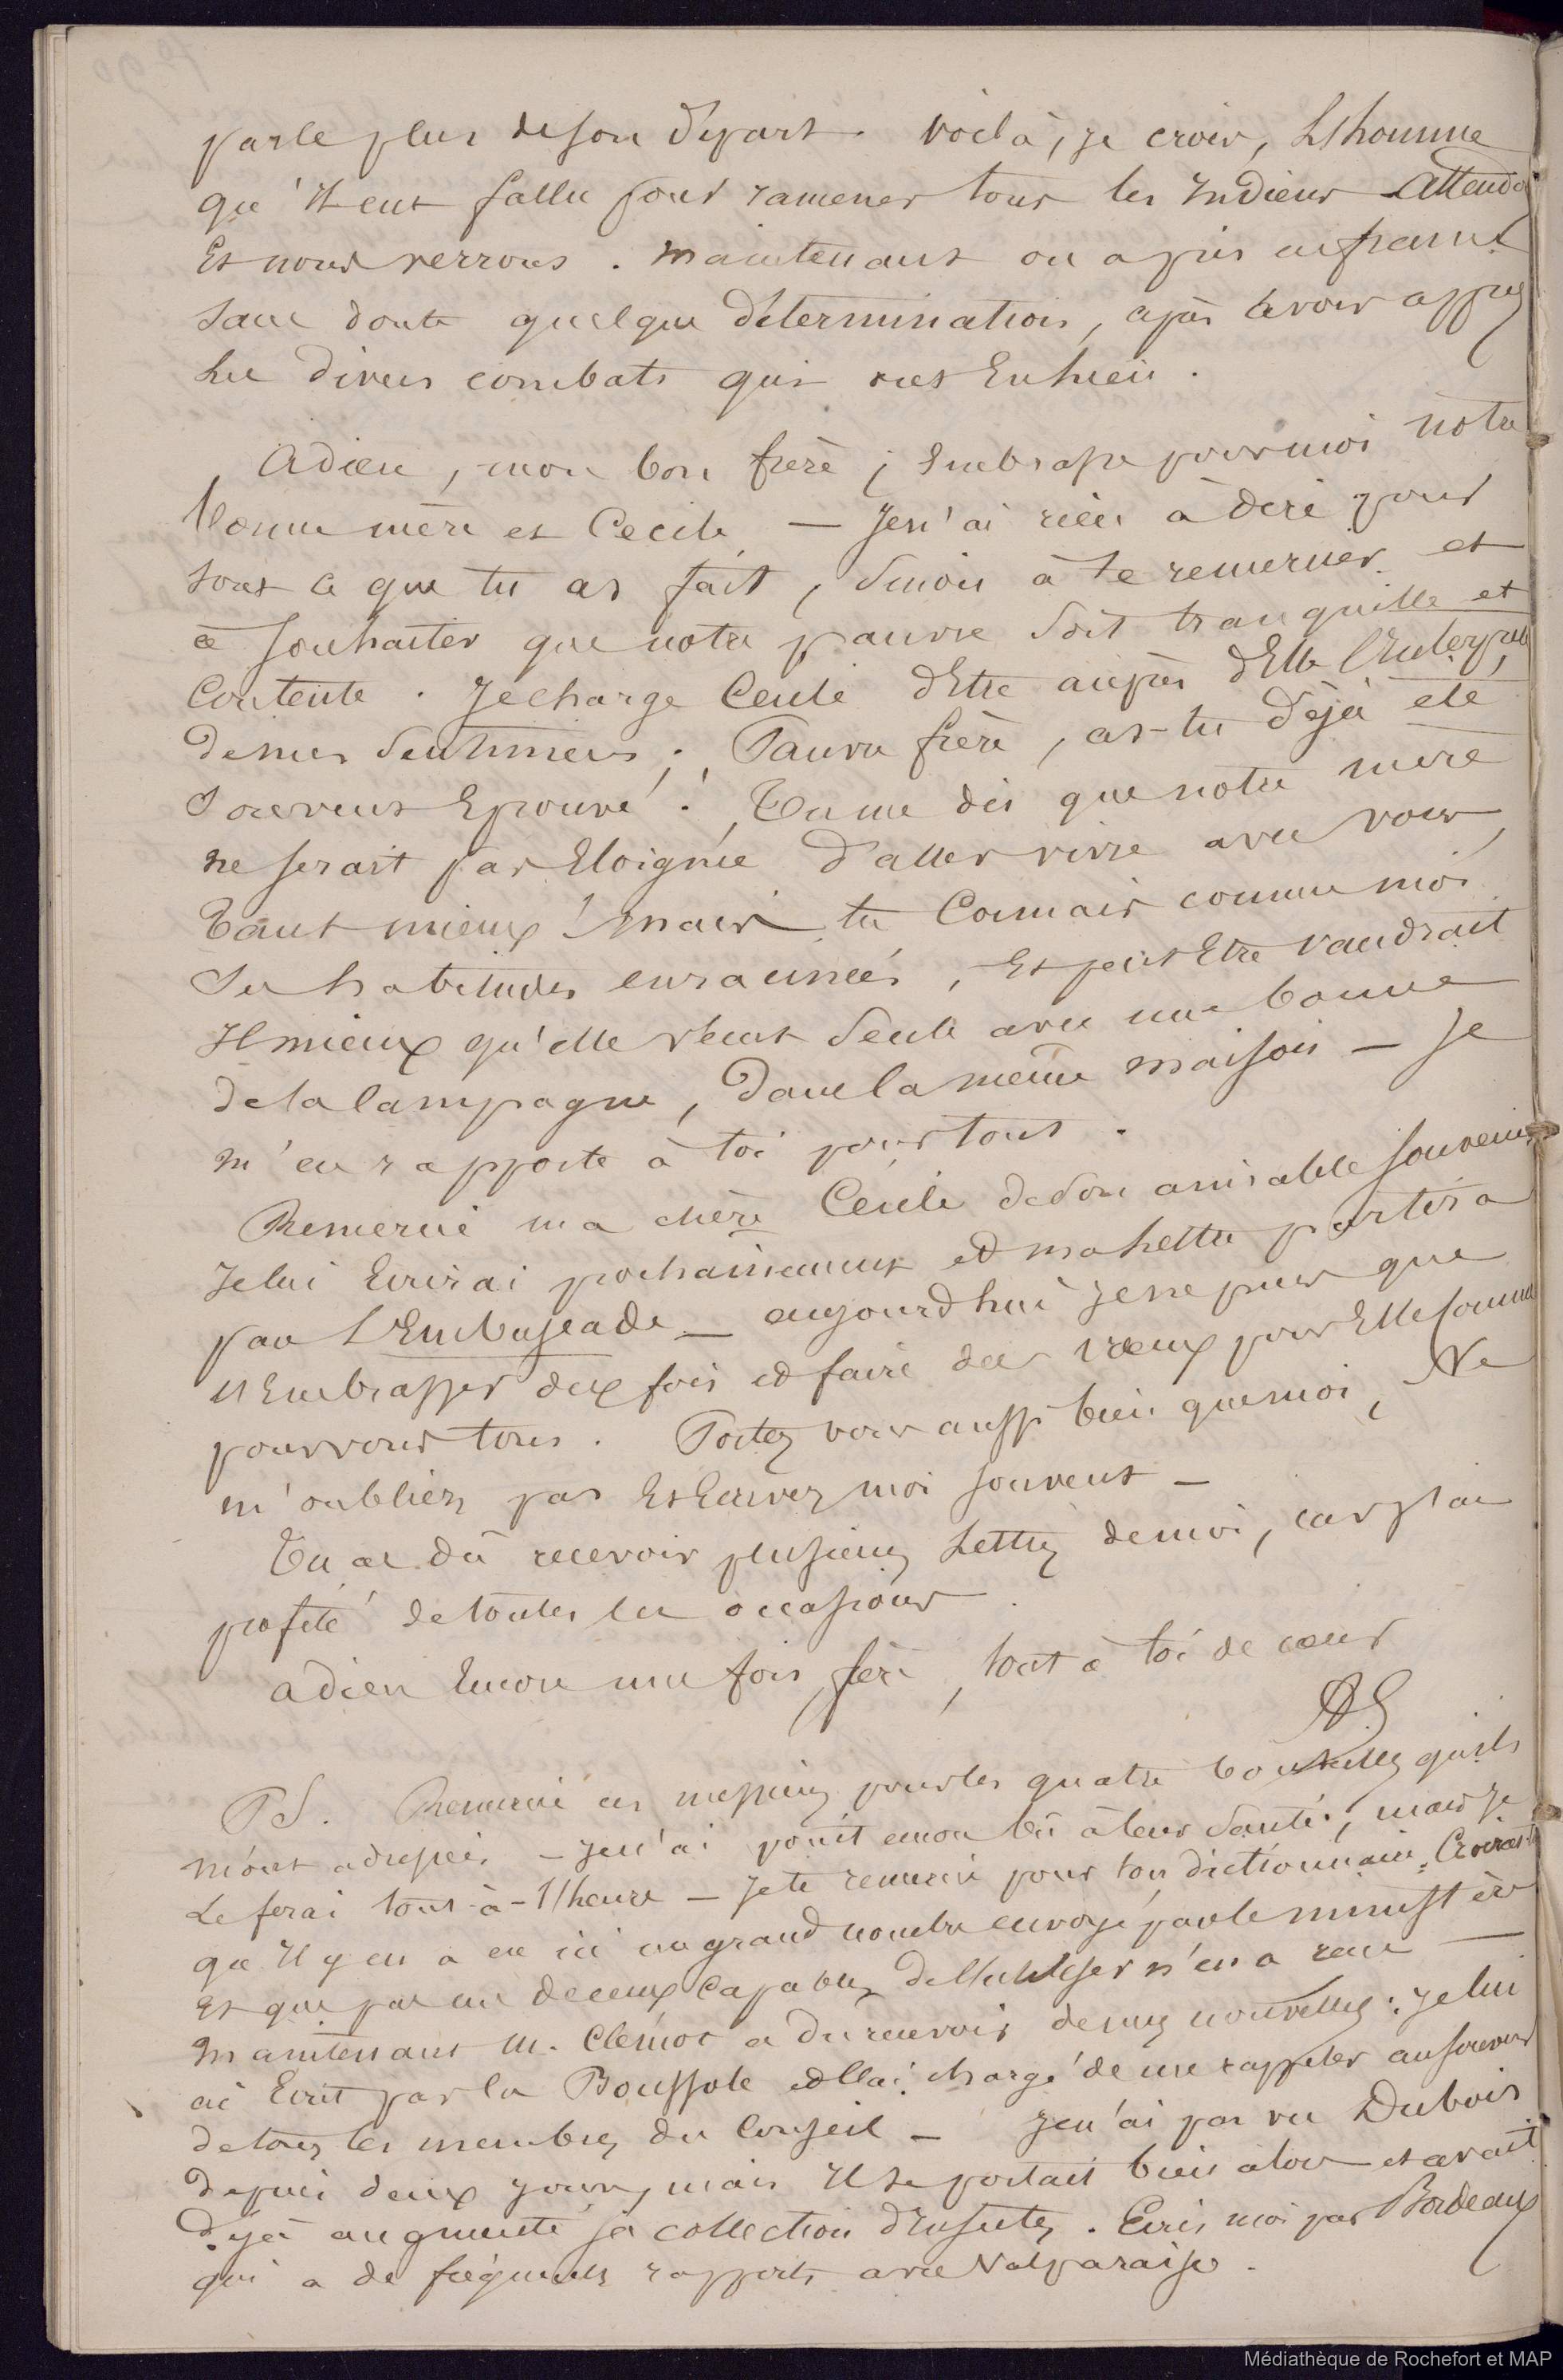 parle plus de son départ. voilà, je crois, L'homme
qu'Il eut fallu pour ramener tous les Indiens Attends
Et nous verrons. maintenant on a pris en france
sans doute quelque détermination, après avoir appris
Les divers combats qui ont Eu lieu.
Adieu, mon bon frère ; Embrasse pour moi notre
bonne mère et Cecile — Je n'ai rien à dire pour
tout ce que tu as fait, sinon à te remercier et
à souhaiter que notre pauvre soit tranquille et
Contente. Je charge Cecile d'Etre auprès d'Elle L'Interprète
de mes sentimens ; Pauvre frère, as-tu déjà été
souvent Eprouvé ! Tu me dis que notre mère
ne serait pas Eloignée d'aller vivre avec vous,
Tant mieux ! mais tu Connais comme moi
ses habitudes enracinées, Et peut Etre vaudrait
Il mieux qu'elle vecut seule avec une bonne
de la campagne, dans la même maison — Je
m'en rapporte à toi pour tout.
Remercie ma chère Cecile de son aimable souvenir
Je lui Ecrirai prochainement et ma Lettre partira
par L'Embuscade — aujourd'hui je ne puis que
L'Embrasser deux fois et faire des vœux pour Elle comme
pour vous tous. Portez vous aussi bien que moi, Ne
m'oubliez pas Et Ecrivez moi souvent —
Tu as dû recevoir plusieurs Lettres de moi, car j'ai
profité de toutes les occasions.
adieu Encore une fois, frère, tout à toi de cœur
PS. Remercie ces messieurs pour les quatre bouteilles qu'ils
m'ont adressées — Je n'ai point encore bû à leur Santé, mais je
Le ferai tout-à-l'heure — Je te remercie pour ton dictionnaire. Croirais-tu
qu'Il y en a eu ici un grand nombre envoyé par le ministère
Et que pas un de ceux Capables de L'utiliser n'en a reçu —
maintenant M. Clémot a du recevoir de mes nouvelles : Je lui
ai Ecrit par la Boussole et l'ai chargé de me rappeler au souvenir
de tous les membres du Conseil — Je n'ai pas vu Dubois
depuis deux jours, mais Il se portait bien alors et avait
déjà augmenté sa collection d'Insectes. Ecris moi par Bordeaux
qui a de fréquents rapports avec Valparaiso.
Médiathèque de Rochefort et MAP